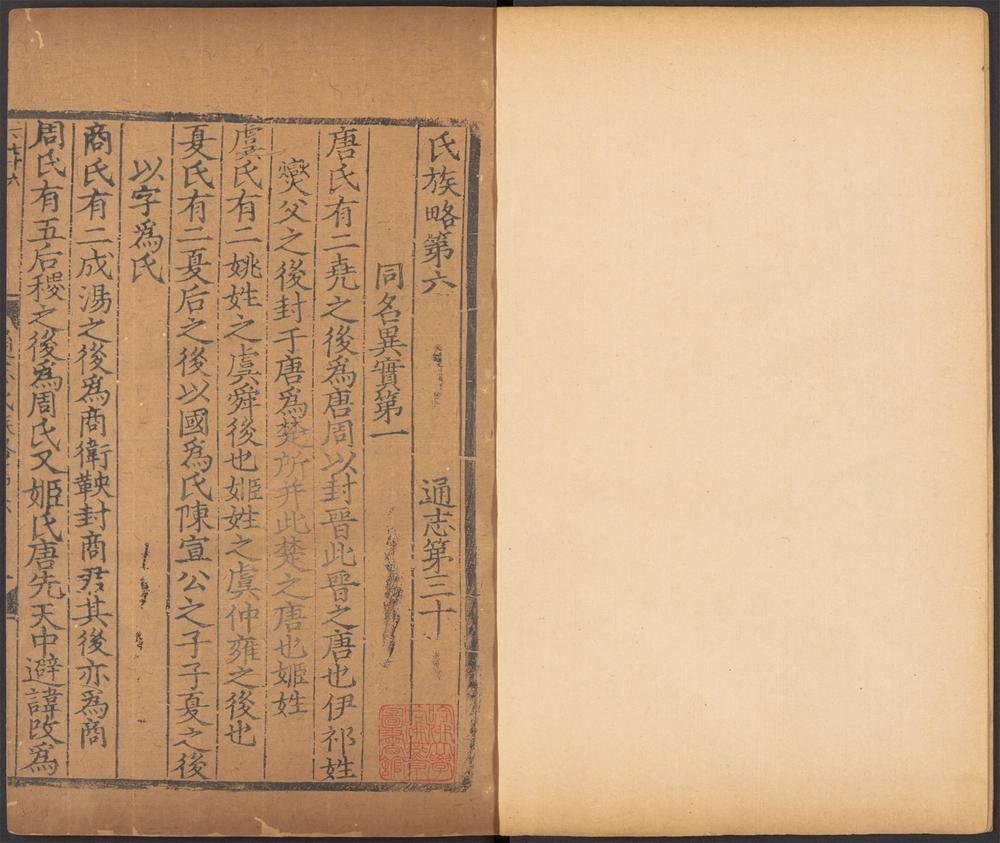 氏族略第六 通志第三十
同名異實第一
唐氏有二堯之後為唐周以封晉此晉之唐也伊祁姓
燮父之後封于唐為楚所并此楚之唐也姬姓
虞氏有二姚姓之虞舜後也姬姓之虞仲雍之後也
夏氏有二夏后之後以國為氏陳宣公之子子夏之後
以字為氏
商氏有二成湯之後為商衛鞅封商君其後亦為商
周氏有五后稷之後為周氏又姬氏唐先天中避諱改為